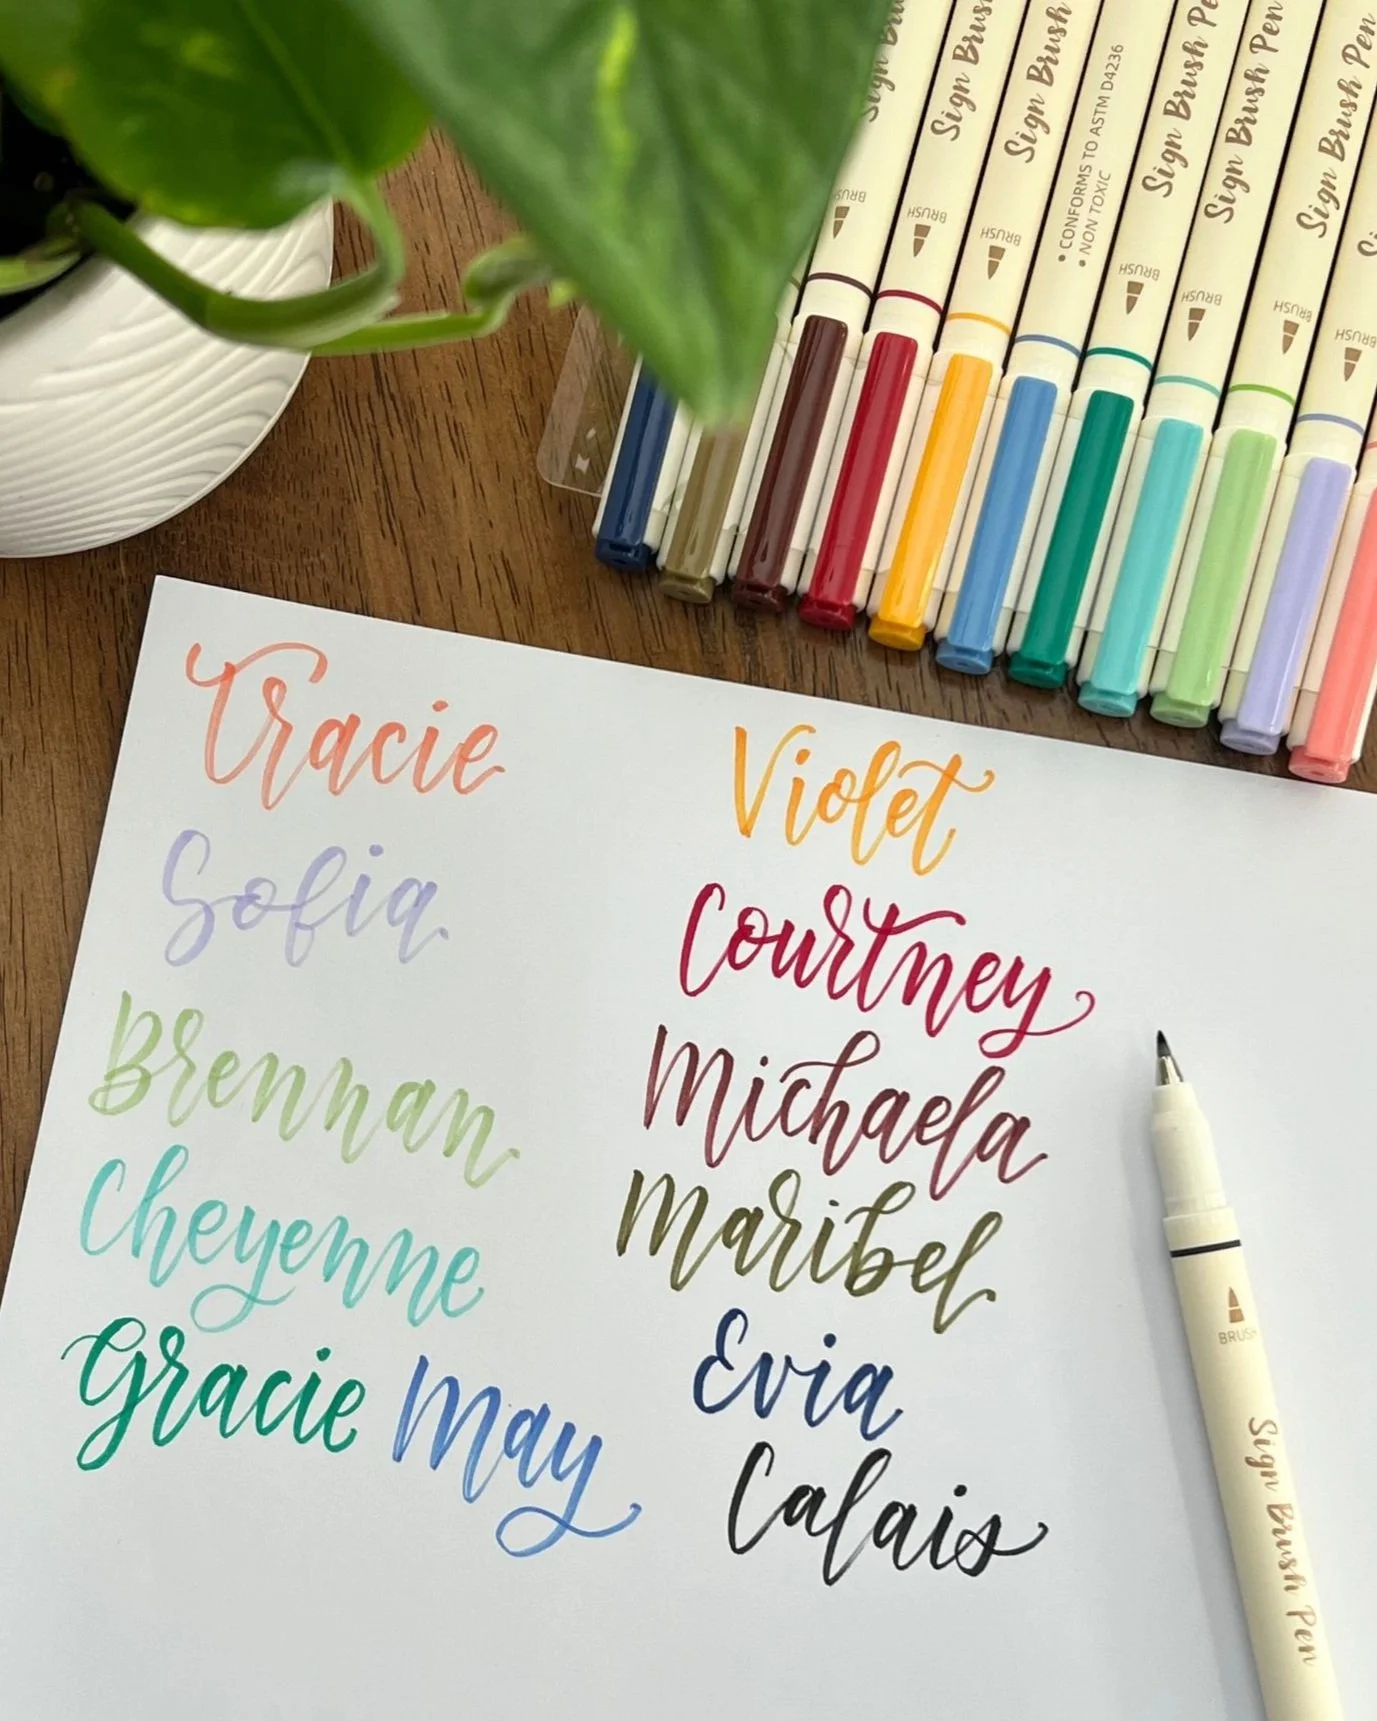 Sign Brush
Sign Brush
Sign Brush
• CONFORMS TO ASTM D4236
• NON TOXIC
Sign Brush Pe
Sign Brush Pen
Sign Brush Pen
BRUSH
BRUSH
BRUSH
BRUSH
BRUSH
BRUSH
BRUSH
Tracie
Sofia
Brennan
Cheyenne
Gracie May
Violet
Courtney
Michaela
Maribel
Evia
Calais
BRUSH
Sign Brush Pen